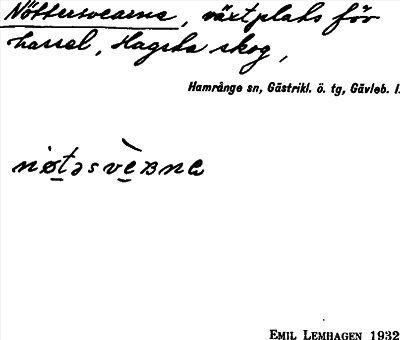 Nöttersvearna, växtplats för
hassel, Hagsta skog,
Hamrånge sn, Gästrikl. ö. tg, Gävleb. l.
EMIL LEMHAGEN 1932